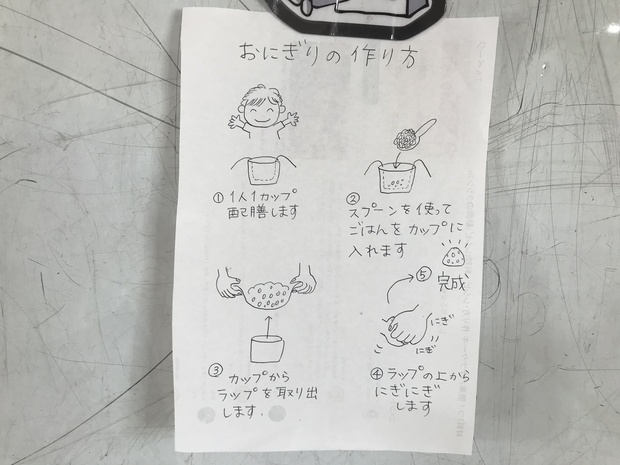 おにぎりの作り方
① 1人1カップ
配膳します
②
スプーンを使って
ごはんをカップに
入れます
③ カップから
ラップを取り出
します.
にぎ
にぎ
④ ラップの上から
にぎにぎ
します
⑤ 完成